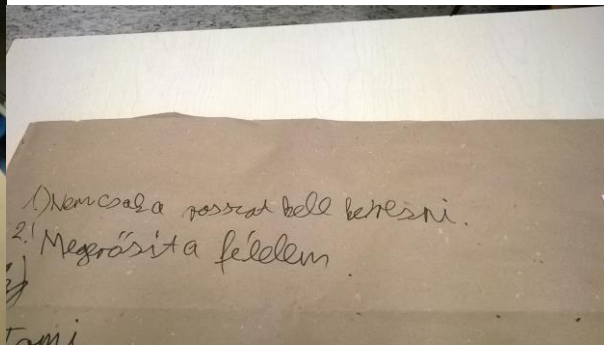 1.) Nem csak a rosszat kell keresni.
2.) Megerősít a félelem
Tami